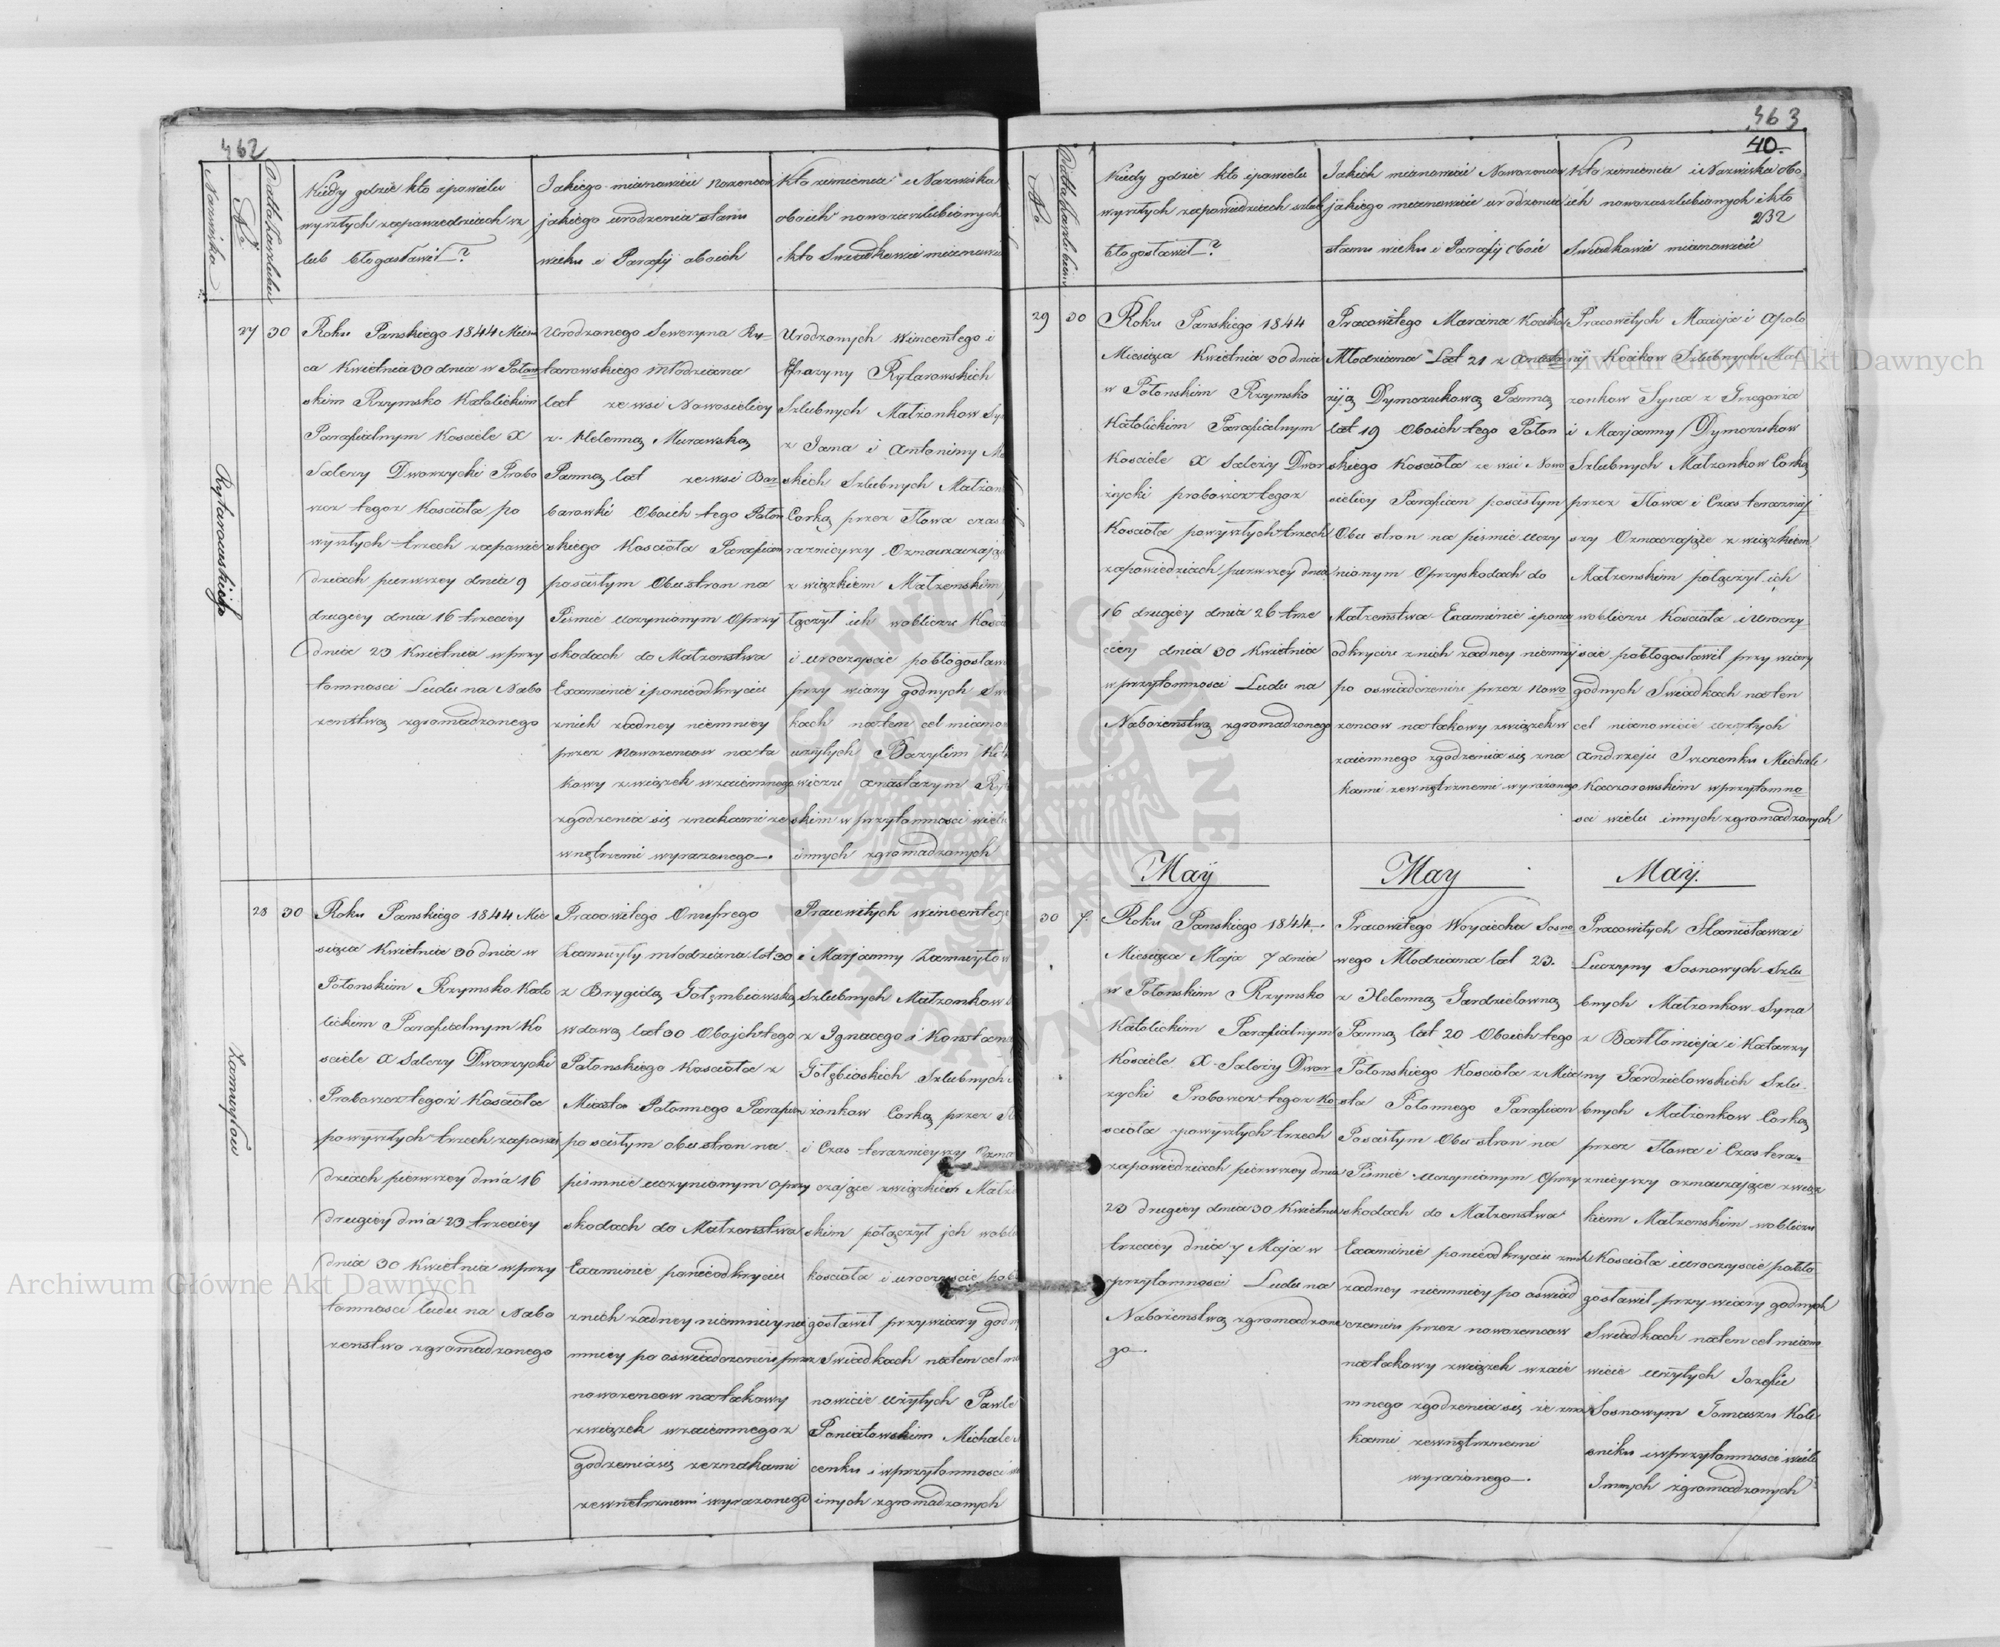 462
Nazwiska
No
Data Zaslubin
Kiedy gdzie kto i po wielu
wyszłych zapowiedziach sz
lub błogosławił?
Jakiego mianowicie nozencow
jakiego urodzenia stanu
wieku i Parafij oboich
Kto z imienia i Nazwiska
oboich nowozaszlubionych
i kto Swiadkowie mianowi
Rytarowskiego
27
30
Roku Panskiego 1844 Miesi
ca Kwietnia 30 dnia w Połon
skim Rzymsko Katolickim
Parafialnym Kosciele X
Salezy Dworzycki Probo
szcz tegoz Kosciola po
wyszłych trzech zapowie
dziach pierwszey dnia 9
drugiey dnia 16 trzeciey
dnia 23 Kwietnia w przy
tomnosci Ludu na Nabo
zenstwo zgromadzonego
Urodzonego Seweryna Ry-
tarowskiego młodziana
lat ze wsi Nowosielicy
z Helenną Murawską
Panną lat ze wsi Bor
barowki Oboich tego Połon
skiego Kosciola Parafian
po scisłym Obu stron na
Pismie uczynionym O przy
skodach do Małzenstwa
Examinie i ponieodkryciu
znich zadney niemniey
przez Nowozencow na ta
kowy zwiąsek wzaiemnego
zgodzenia się znakami ze
wnętrzemi wyrazonego.
Urodzonych Wincentego i
Efrozyny Rytarowskich
Szlubnych Małzonkow Sy
z Jana i Antoniny Mu
skich Szlubnych Małzon
Corką przez słowa czas
raznieyszy Oznaczaiąc
zwiąskiem Małzenskim
łączył ich wobliczu Kosci
i uroczyscie pobłogosławi
przy wiary godnych Swi
kach na ten cel miano
uzytych Bazylim Ki
wiczu Anastazym Ryta
skim w przytomnosci wielu
innych zgromadzonych
Zamczytow
28
30
Roku Panskiego 1844 Mie
siąca Kwietnia 30 dnia w
Połonskim Rzymsko Kato
lickim Parafialnym Ko
sciele X Salezy Dworzycki
Proboszcz tegoz Kosciola
powyszłych trzech zapowie
dziach pierwszey dnia 16
drugiey dnia 23 trzeciey
dnia 30 Kwietnia w przy
tomnosci Ludu na Nabo
zenstwo zgromadzonego
Pracowitego Onufrego
Zamczyty młodziana lat 30
z Brygidą Gołembiowską
wdową lat 30 Obojch tego
Połonskiego Kosciola z
Miasta Połonnego Parafian
po scisłym obu stron na
pismie uczynionym o przy
skodach do Małzenstwa
Examinie ponieodkryciu
znich zadney niemniey na
mniey po oswiadczeniu przez
nowozencow na takowy
zwiąsek wzaiemnego z
godzenia się zeznakami
zewnetrznemi wyrazonego
Pracowitych Wincentego
i Marjanny Zamczytow
Szlubnych Małzonkow
z Ignacego i Konstan
Gołębioskich Szlubnych
zonkow Corką przez
i Czas teraznieyszy Ozna
czaiące zwiąskiem Małze
skim połączył jch wobli
kosciola i uroczyscie pob
gosławił przy wiary godn
Swiadkach na ten cel mi
nowicie uzytych Pawle
Poniatowskim Michale
cenku i w przytomnosci
innych zgromadzonych
463
40.
232
No
Data Zaslubin
Kiedy gdzie kto i powielu
wyszłych zapowiedziach szlub
błogosławił?
Jakich mianowicie Nowozencow
jakiego mianowicie urodzenia
stanu wieku i Parafij Oboie
Kto z imienia i Nazwiska obo
ich nowozaszlubionych i kto
Swiadkowie mianowicie
29
30
Roku Panskiego 1844
Miesiąca Kwietnia 30 dnia
w Połonskim Rzymsko
Katolickim Parafialnym
Kosciele X Salezy Dwor
zycki proboszcz tegoz
Kosciola powyszłych trzech
zapowiedziach pierwszey dnia
16 drugiey dnia 26 trze
ciey dnia 30 Kwietnia
w przytomnosci Ludu na
Nabozenstwo zgromadzonego
Pracowitego Marcina Kocika
Młodziana Lat 21 z Anasta
zyą Dymczukową Panną
lat 19 Oboich tego Połon
skiego Kosciola ze wsi Nowo
sielicy Parafian poscisłym
Obu stron na pismie uczy
nionym O przyskodach do
Małzenstwa Examinie i ponie
odkryciu znich zadney niemniej
po oswiadczeniu przez nowo
zencow na takowy związek w
zaiemnego zgodzenia się zna
kami zewnętrznemi wyrazonego
Pracowitych Macieja i Apolo
nij Kocikow Szlubnych Mał
zonkow Syna z Grzegorza
i Marjanny Dymczukow
Szlubnych Małzonkow Corką
przez Słowa i Czas teraźniej
szy Oznaczające zwiąskiem
Małzenskim połączył ich
wobliczu Kosciola i uroczy
scie pobłogosławił przy wiary
godnych Swiadkach na ten
cel mianowicie uzytych
Andrzeju Iszczenku Michale
Kaczorowskim w przytomno
sci wielu innych zgromadzonych
May
May
May.
30
7.
Roku Panskiego 1844.
Miesiąca Maja 7 dnia
w Połonskim Rzymsko
Katolickim Parafialnym
Kosciele X Salezy Dwor
zycki Proboszcz tegoz Ko
sciola powyszłych trzech
zapowiedziach pierwszey dnia
23 drugiey dnia 30 Kwietnia
trzeciey dnia 7 Maja w
przytomnosci Ludu na
Nabozenstwo zgromadzone
go.
Pracowitego Woyciecha Sosno
wego Młodziana lat 23.
z Helenną Gardzielowną
Panną lat 20 Oboich tego
Połonskiego Kosciola z Mia
sta Połonnego Parafian
Poscisłym Obu stron na
Pismie uczynionym O przy
skodach do Małzenstwa
Examinie ponieodkryciu znich
zadney niemniey po oswiad
czeniu przez nowozencow
na takowy zwiąsek wzaie
mnego zgodzenia się ze zna
kami zewnętrznemi
wyrazonego.
Pracowitych Stanisława i
Luczyny Sosnowych Szlu
bnych Małzonkow Syna
z Bartłomieja i Katarzy
ny Gardzielowskich Szlu
bnych Małzonkow Corką
przez Słowa i Czas teraz
znieyszy oznaczające zwiąs
kiem Małzenskim wobliczu
Kosciola i uroczyscie pobło
gosławił przy wiary godnych
Swiadkach na ten cel miano
wicie uzytych Jozefie
Sosnowym Tomaszu Kole
sniku i w przytomnosci wielu
Innych zgromadzonych
Archiwum Główne Akt Dawnych
Archiwum Główne Akt Dawnych